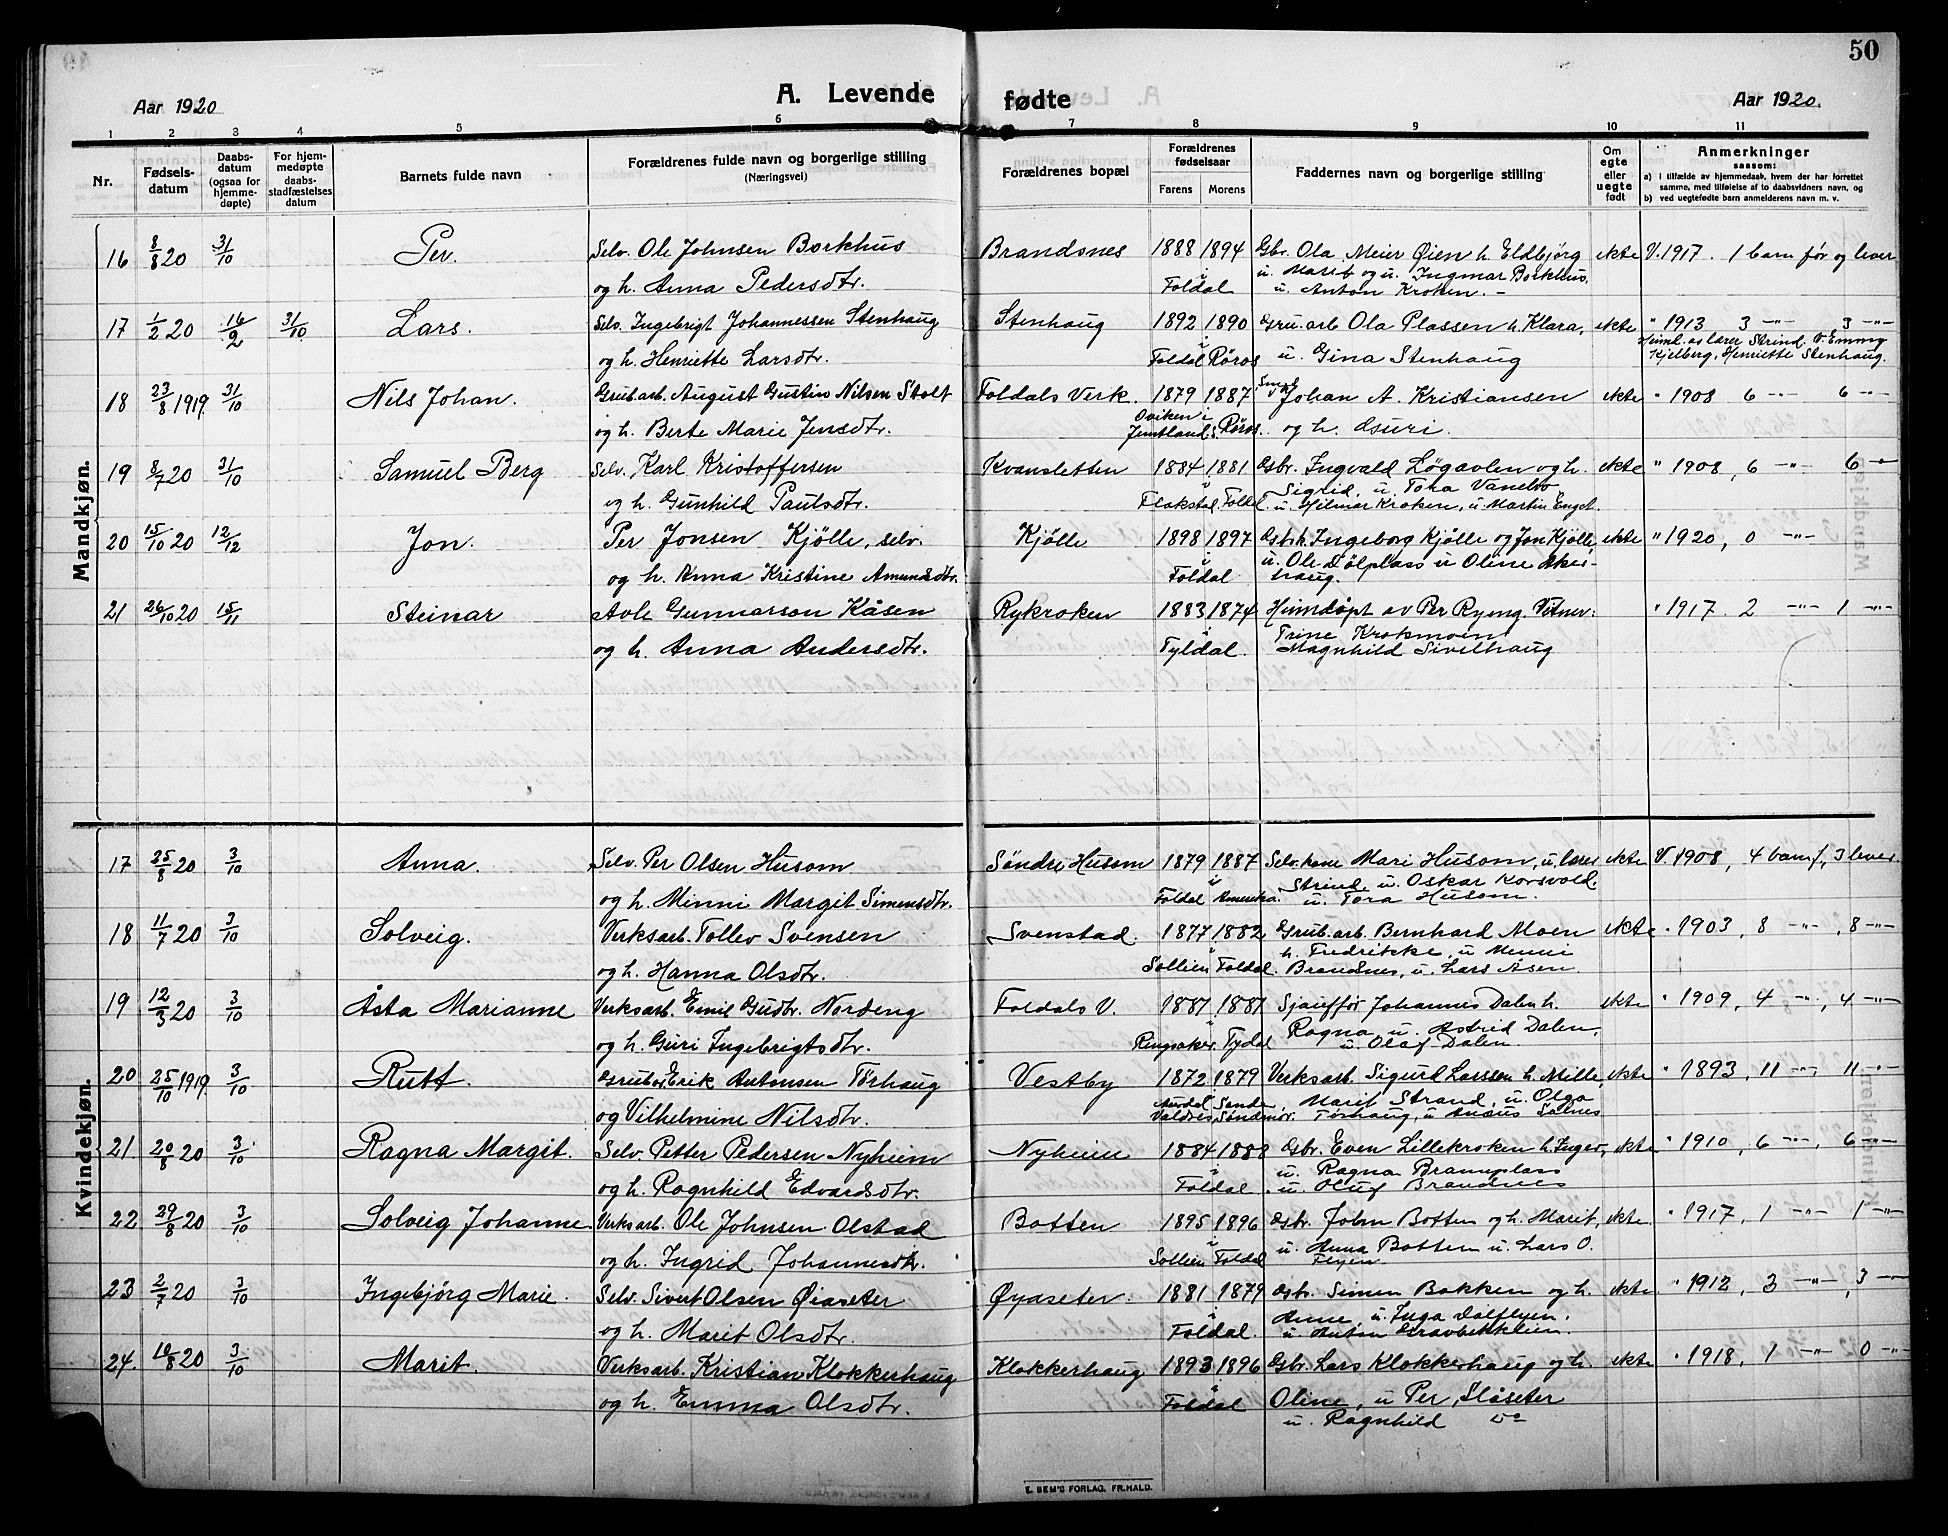 50
Aar 1920
A. Levende
fødte
Aar 1920.
1 2 3 4 5 6 7 8 9 10 11
Nr.
Fødsels-
datum
Daabs-
datum
(ogsaa for
hjemme-
døpte)
For hjem-
medøpte
daabs-
stadfæstelses
datum
Barnets fulde navn
Forældrenes fulde navn og borgerlige stilling
(Næringsvei)
Forældrenes bopæl
Forældrenes
fødselsaar
Farens Morens
Faddernes navn og borgerlige stilling
Om
egte
eller
uegte
født
Anmerkninger
saasom:
a) i tilfælde av hjemmedaab, hvem der har forrettet
samme, med tilføielse af to daabsvidners navn, og
b) ved uegtefødte barn anmelderens navn m. v.
Mandkjøn.
16 8/8 20 31/10 Per. Selv. Ole Johnsen Borkhus Brandsnes 1888 1894 Gbr. Ola Meier Øien h. Eldbjørg ekte V. 1917. 1 barn før og lever
og h. Anna Pedersdtr. i Foldal u. Marit og u. Ingmar Borkhus,
u. Anton Kroken. -
17 1/2 20 16/2 31/10 Lars. Selv. Ingebrigt Johannessen Stenhaug Stenhaug 1892 1890 Gru. arb Ola Plassen h. Klara, ekte " 1913 3 -"- 3 -"-
og h. Henriette Larsdtr. Foldal i Røros u. Gina Stenhaug Himd. av lærer Strind. V. Emmy
Kjelberg, Henriette Stenhaug.
18 23/8 1919 31/10 Nils Johan. Grub.arb. August Gustin Nilsen Stolt Foldals Verk. 1879 1887 Johan A. Kristiansen ekte " 1908 6 -"- 6 -"-
og h. Berte Marie Jensdtr. Oviken i Jemtland Røros. og h. Guri.
19 8/7 20 31/10 Samuel Berg Selv. Karl Kristoffersen Kvansletten 1884 1881 Gbr. Ingvald Løgavlen og h. ekte " 1908, 6 -"- 6 -"-
og h. Gunhild Paulsdtr. Flakstad i Foldal Sigrid, u. Tora Vanebo
u. Hilmar Kroken, u. Martin Enget.
20 15/10 20 12/12 Jon. Per Jonsen Kjølle, selv. Kjølle 1898 1897 Gbr.k. Ingeborg Kjølle og Jon Kjølle, ekte " 1920, 0 -"-
og h. Anna Kristine Amundsdtr. i Foldal u. Ole Dølplass u Oline Aker-
haug.
21 26/10 20 15/11 Steinar Avle Gunnarson Kåsen Rykroken 1883 1874 Himdøpt av Per Ryeng. Vitner: " 1917. 2 -"- 1 -"-
og h. Anna Andersdtr. i Tyldal. Trine Krokmoen
Magnhild Sivelhaug
Kvindekjøn.
17 25/8 20 3/10 Anna. Selv. Per Olsen Husom Søndre Husom 1879 1887 Selv. kone Mari Husom, u. lærer ekte V. 1908, 4 barn f, 3 lever
og h. Minni Margit Simensdtr. Foldal i Amerika. Strind, u. Oskar Korsvold.
u. Tora Husom.
18 11/7 20 3/10 Solveig. Verksarb. Tollev Svensen Svenstad. 1877 1882 Grub.arb. Bernhard Moen ekte " 1903, 8 -"-, 8 -"-
og h. Hanna Olsdtr. Sollien i Foldal. h. Fredrikke, u Menni
Brandsnes, u. Lars Åsen
19 12/3 20 3/10 Åsta Marianne Verksarb. Emil Gudbr. Nordeng Foldals V. 1887 1881 Sjauffør Johannes Dalen h. ekte " 1909, 4 -"-, 4 -"-
og h. Guri Ingebrigtsdtr. Ringsaker. Tydal Ragna, u. Astrid Dalen,
u. Olaf Dalen.
20 25/10 1919 3/10 Rutt. Erik Antonsen Tørhaug Vestby 1872 1879 Verksarb. Sigurd Larssen h. Mille, ekte " 1893, 11 -"- 11 -"-
og Vilhelmine Nilsdtr. Aurdal Valdres, Sande, Søndmør. Marit Strand, u. Olga
Tørhaug, u Anders Salnes
21 20/8 20 3/10 Ragna Margit. Selv. Petter Pedersen Nyheim Nyheim 1884 1888 Gbr. Even Lillekroken h. Inger, ekte " 1910, 6 -"-, 6 -"-
og h. Ragnhild Edvardsdtr. i Foldal u. Ragna Brannplass
u. Oluf Brandnes
22 29/8 20 3/10 Solveig Johanne Verksarb. Ole Johnsen Olstad Botten 1895 1896 Gbr. John Botten og h. Marit, ekte. " 1917, 1 -"- 1 -"-
og h. Ingrid Johannesdtr. Sollien i Foldal u. Anna Botten u. Lars O.
Flyen.
23 2/7 20 3/10 Ingebjørg Marie. Selv. Sivert Olsen Øiaseter Øyaseter. 1881 1879 Gbr. Simen Bakken og h. ekte " 1912, 3 -"-, 3 -"-
og h. Marit Olsdtr. i Foldal. Anne, u. Inga Dalflyen.
u. Anton Gravbekklien.
24. 16/8 20 3/10 Marit. Verksarb. Kristian Klokkerhaug Klokkerhaug 1893 1896 Gbr. Lars Klokkerhaug og h. ekte " 1918, 1 -"- 0 -"-
og h. Emma Olsdtr. i Foldal Oline, u Per, Slåseter
u. Ragnhild
E. SEM'S FORLAG, FR.HALD.